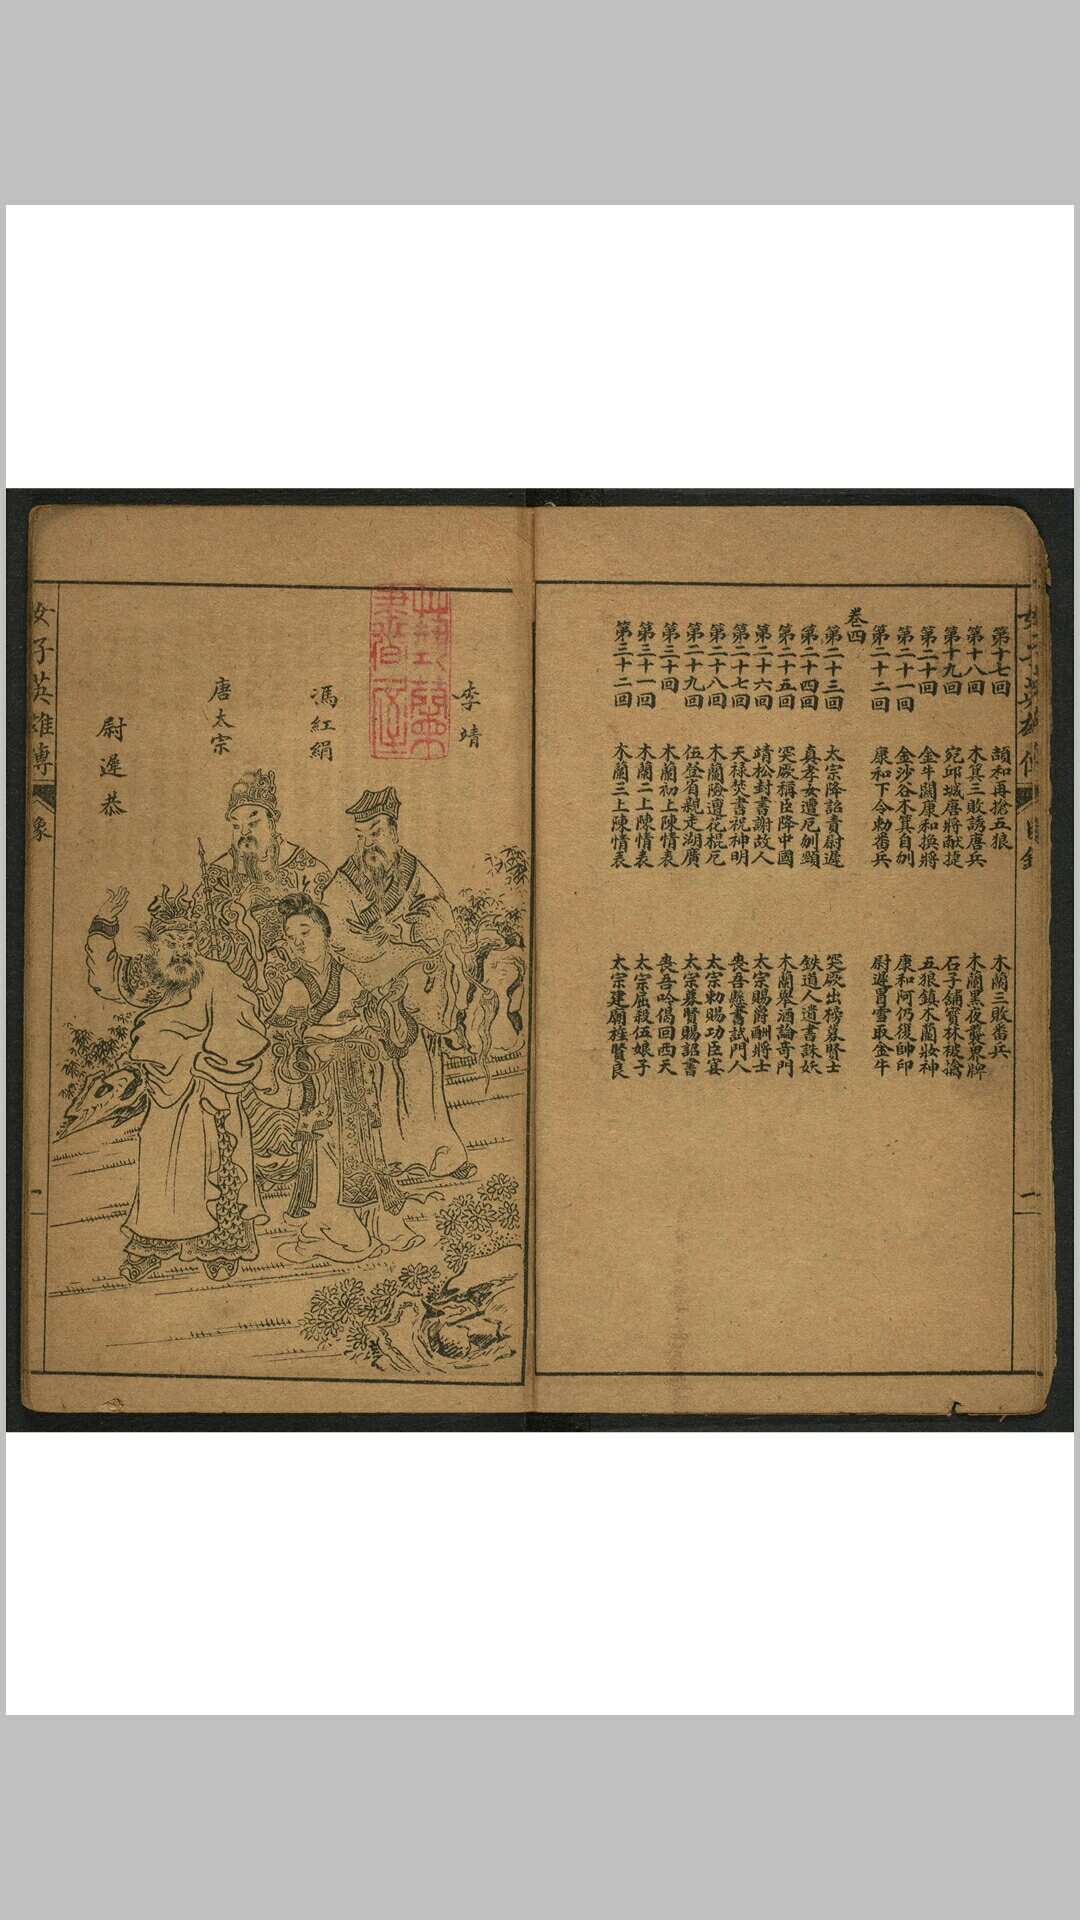 女子英雄傳
目錄
第十七回 頡和再搶五狼 木蘭三敗番兵
第十八回 木箕三敗誘唐兵 木蘭黑夜襲界牌
第十九回 宛邱城唐將献捷 石子舖寶林被擒
第二十回 金牛關康和換將 五狼鎮木蘭妝神
第二十一回 金沙谷木箕自刎 康和阿仍復帥印
第二十二回 康和下令勅番兵 尉遲冒雪取金牛
卷四
第二十三回 太宗降詔責尉遲 突厥出榜募賢士
第二十四回 真孝女遭厄刎頸 鉄道人遺書誅妖
第二十五回 突厥稱臣降中國 木蘭舉酒論奇門
第二十六回 靖松封書謝故人 太宗賜爵酬將士
第二十七回 天禄焚書祝神明 喪吾懸書試門人
第二十八回 木蘭險遭花棍厄 太宗勅賜功臣宴
第二十九回 伍登省親走湖廣 太宗募賢賜詔書
第三十回 木蘭初上陳情表 喪吾吟偈回西天
第三十一回 木蘭二上陳情表 太宗屈殺伍娘子
第三十二回 木蘭三上陳情表 太宗建廟旌賢良
李靖
馮紅絹
唐太宗
尉遲恭
女子英雄傳
像
二